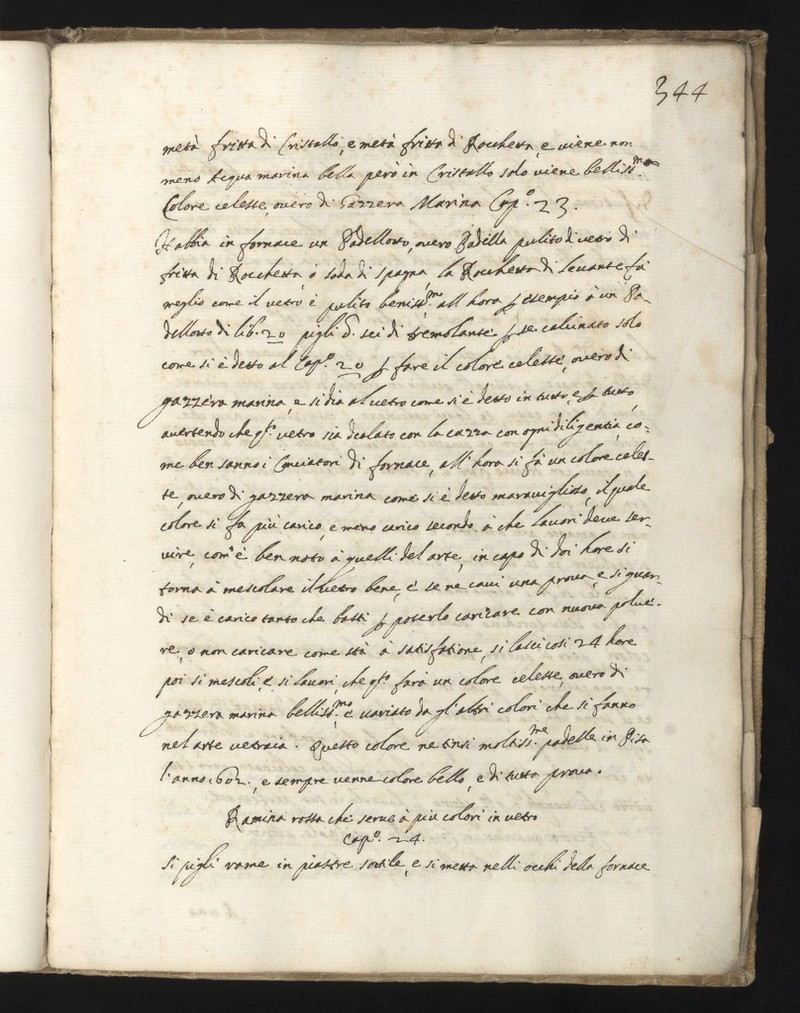 344
metà fritta di Cristallo, e metà fritta di Rocchetta, e viene non
meno Acqua marina bella però in Cristallo solo viene belliss.mo
Colore celeste, overo di Gazzera Marina Cap.o 23.
Habbia in fornace un Padellotto, overo Padella pulito di vetro di
fritta di Rocchetta ò soda di spagna, la Rocchetta di levante fà
meglio come il vetro è pulito beniss.mo all hora p esempio à un Pa-
dellotto di lib. 20 pigli d. sei di tremolante p se calcinato solo
come si è detto al Cap.o 20 p fare il colore celeste, overo di
gazzera marina, e si dia al vetro come si è detto in tutto, e p tutto,
avertendo che q.o vetro sia dealato con la cazza con ogni diligentia, co-
me ben sanno i Conciatori di fornace, all' hora si fà un colore celes-
te, overo di gazzera marina come si è detto maraviglioso, il quale
colore si fa più carico, e meno carico secondo à che lavori deve ser-
vire, com'è ben noto à quelli del arte, in capo di doi hore si
torna à mescolare il vetro bene, e se ne cavi una prova, e si guar-
di se è carico tanto che basti p poterlo caricare con nuova polve-
re, o non caricare come stà à satisfatione, si lasci così 24 hore
poi si mescoli, e si lavori, che q.o farà un colore celeste, overo di
gazzera marina belliss.mo, e variato da gl'altri colori che si fanno
nel arte vetraia. Questo colore ne tinsi moltiss.me padelle in Pisa
l'anno 1602., e sempre venne colore bello, e di tutta prova.
Ramina rossa che serve à più colori in vetro
Cap.o 24.
Si pigli rame in piastre sottile, e si metta nelli occhi della fornace